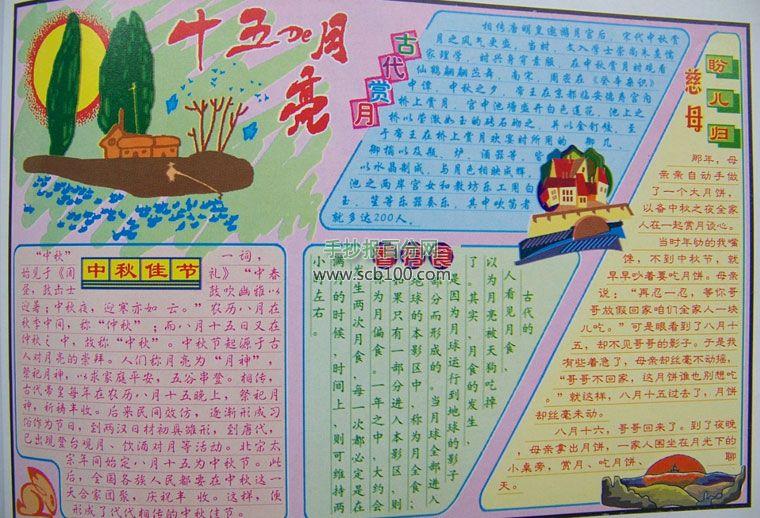 十五de月亮
古代赏月
相传唐明皇遨游月宫后，宋代中秋赏
月之风气更盛，当时，文人学士崇尚朱熹儒
家理学，时兴身背素服，在中秋赏月时观看
仙鹤翩翩飞舞，南宋，周密在《癸辛杂识》
中谭，中秋之夕，帝王在京都临安德寿宫内
桥上赏月，宫中池塘盛开白色莲花，池上之
桥以莹澈如玉的砖石砌之，并以金钉铰，至
于帝王在桥上赏月欢宴时所用的 御几
御榻以及瓶、炉、酒器等，皆
以水晶制成，与月色相映成辉，
池之两岸宫女和教坊乐工用白
玉、笙等乐器奏乐，其中吹笛者
就多达200人。
慈母
盼儿归
那年，母
亲亲自动手做
了一个大月饼，
以备中秋之夜全家
人在一起赏月谈心。
当时年幼的我嘴
馋，不到中秋节，就
早早吵着要吃月饼。母亲
说：“再忍一忍，等你哥
哥放假回家咱们全家人一块
儿吃。”可是眼看到了八月十
五，却不见哥哥的影子。于是我
有些着急了，母亲却丝毫不动摇，
“哥哥不回家，这月饼谁也别想吃
。”就这样，八月十五过去了，月饼
却丝毫未动。
八月十六，哥哥回来了。到了夜晚
，母亲拿出月饼，一家人围坐在月光下的
小桌旁，赏月、吃月饼、聊
天。
中秋佳节
“中秋”一词，
始见于《周礼》“中春
昼，鼓击士鼓吹幽雅以
迎暑；中秋夜，迎寒亦如云。”农历八月在
秋季中间，称“仲秋”；而八月十五日又在
仲秋之中，故称“中秋”。中秋节起源于古
人对月亮的崇拜。人们称月亮为“月神”，
祭祀月神，以求家庭平安，五谷丰登。相传，
古代帝皇每年在农历八月十五晚上，祭祀月
神，祈祷丰收。后来民间效仿，逐渐形成习
俗作为节日，到两汉日材初具雏形，到唐代，
已出现登台观月、饮酒对月等活动。北宋太
宗年间始定八月十五为中秋节。此
后，全国各族人民都要在中秋这一
天合家团聚，庆祝丰收。这样，便
形成了代代相传的中秋佳节。
古代的
人看见月食，
以为月亮被天狗吃掉
了。其实，月食的发生、
是因为月球运行到地球的影子
部分而形成的。当月球全部进入
地球的本影区中，称为月全食；
如果只有一部分进入本影区，则
为月偏食。一年之中，大约会
发生两次月食，每一次都必定是在
满月的时候，时间上，则可维持两
小时左右。
手抄报百分网
www.scb100.com